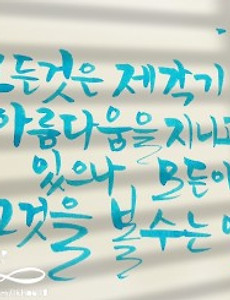 모든것은 제각기
아름다움을 지니고
있으나 모든이
그것을 볼 수는